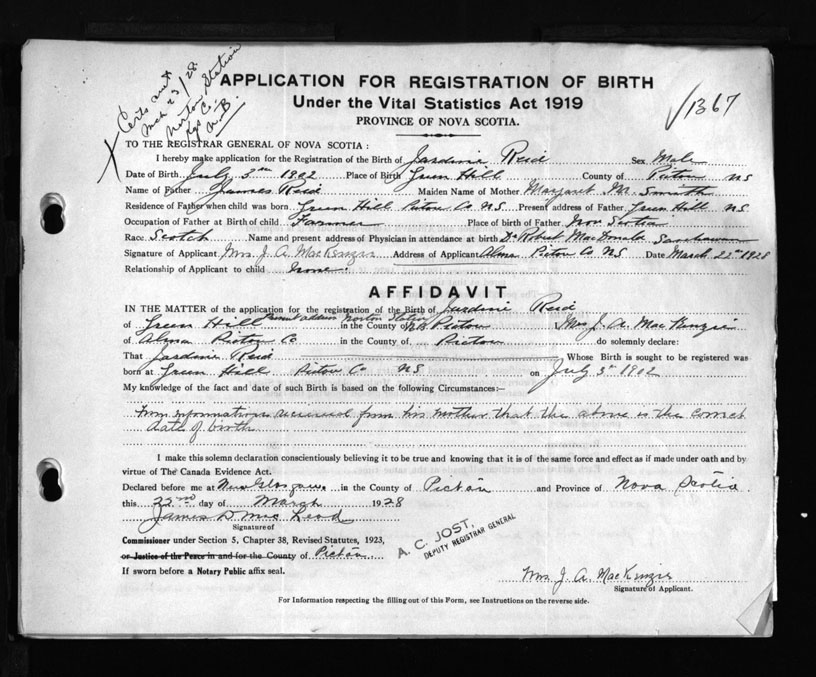 Certs sent
Mch 23/28
Norton Station
Kgs Co.
N.B.
APPLICATION FOR REGISTRATION OF BIRTH
Under the Vital Statistics Act 1919
√1367
PROVINCE OF NOVA SCOTIA.
TO THE REGISTRAR GENERAL OF NOVA SCOTIA :
I hereby make application for the Registration of the Birth of Jardine Reid Sex Male
Date of Birth July 3rd 1902 Place of Birth Green Hill County of Pictou NS
Name of Father James Reid Maiden Name of Mother Margaret M. Smith
Residence of Father when child was born Green Hill Pictou Co NS Present address of Father Green Hill NS
Occupation of Father at Birth of child Farmer Place of birth of Father Nov Scotia
Race Scotch Name and present address of Physician in attendance at birth Dr Robert MacDonald
Signature of Applicant Mrs. J. A. MacKenzie Address of Applicant Alma Pictou Co NS Date March 22nd 1928
Relationship of Applicant to child none.
AFFIDAVIT
IN THE MATTER of the application for the registration of the Birth of Jardine Reid
Present address Norton Station
of Green Hill in the County of NB Pictou Mrs J. A. MacKenzie
of Alma Pictou Co in the County of Pictou do solemnly declare:
That Jardine Reid Whose Birth is sought to be registered was
born at Green Hill Pictou Co NS on July 3rd 1902
My knowledge of the fact and date of such Birth is based on the following Circumstances:—
From information received from his mother that the above is the correct
date of birth
I make this solemn declaration conscientiously believing it to be true and knowing that it is of the same force and effect as if made under oath and by
virtue of The Canada Evidence Act.
Declared before me at New Glasgow in the County of Pictou and Province of Nova Scotia
this 22nd day of March 1928
James D McLeod
Signature of
Commissioner under Section 5, Chapter 38, Revised Statutes, 1923,
or Justice of the Peace in and for the County of Pictou
If sworn before a Notary Public affix seal.
A. C. JOST,
DEPUTY REGISTRAR GENERAL
Mrs. J. A. MacKenzie
Signature of Applicant.
For Information respecting the filling out of this Form, see Instructions on the reverse side.